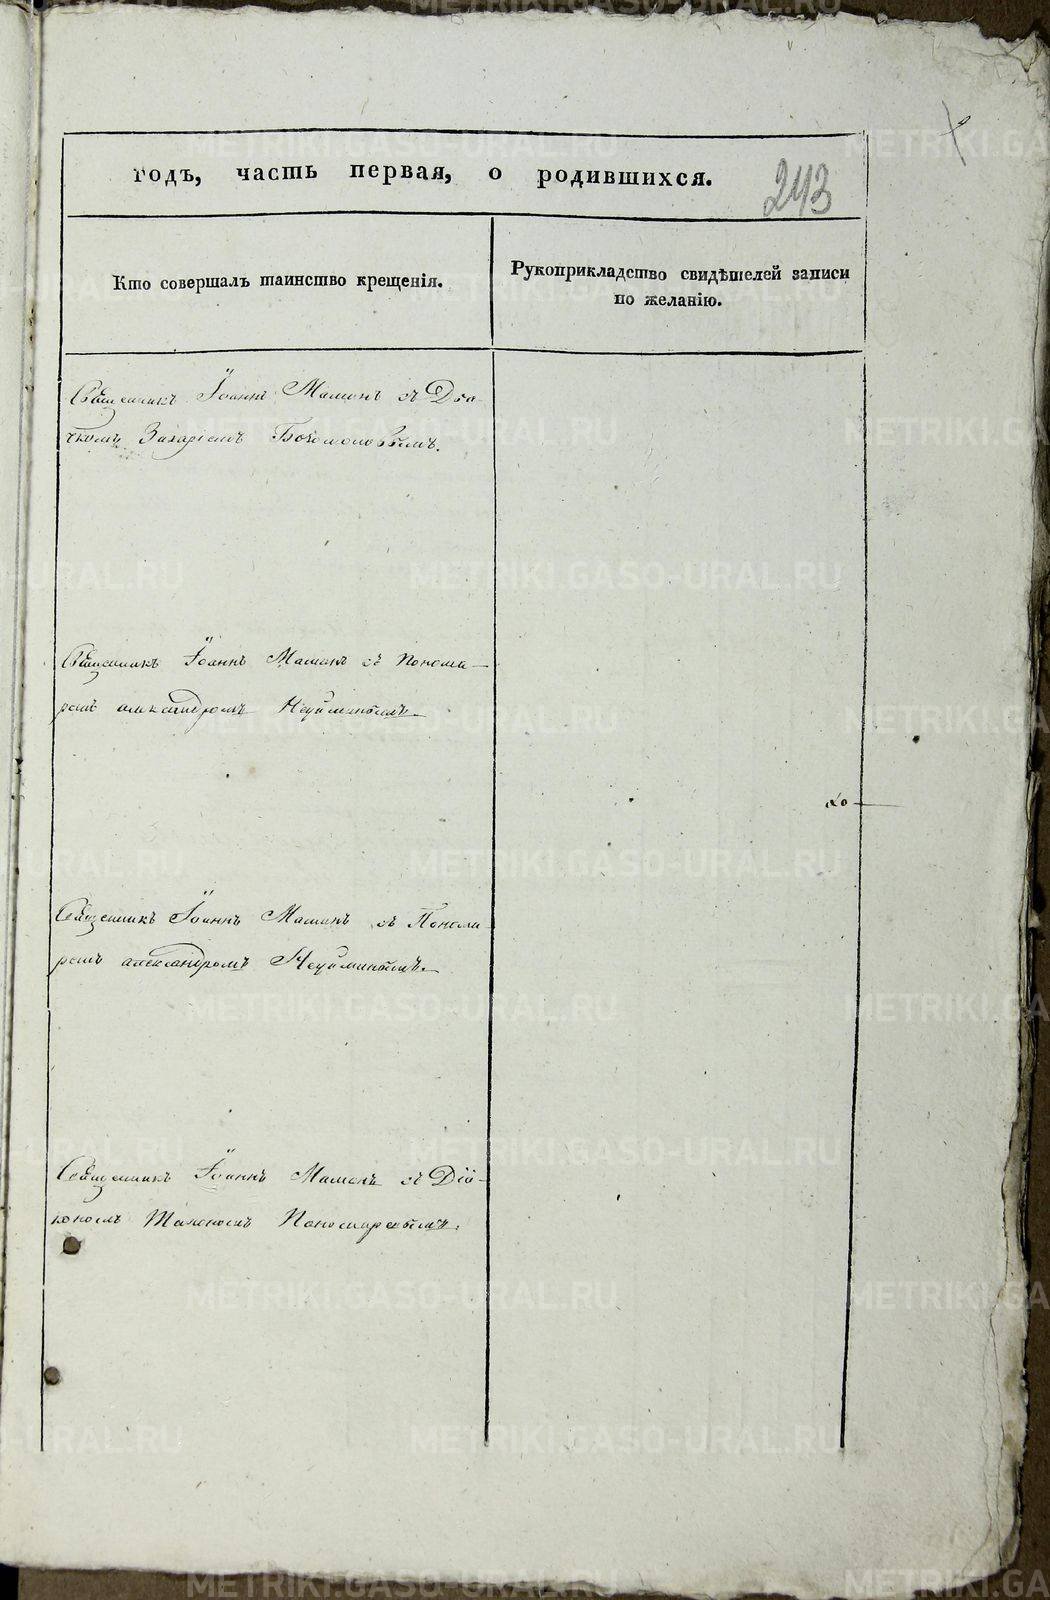 годъ, часть первая, о родившихся.
243
Кто совершалъ таинство крещенія.
Рукоприкладство свидѣтелей записи
по желанію.
Священникъ Іоаннъ Маминъ съ Дья-
чкомъ Захаріемъ Богомоловымъ.
Священникъ Іоаннъ Маминъ съ Понома-
ремъ александромъ Неуйминымъ.
Священникъ Іоаннъ Маминъ съ Понома-
ремъ александромъ Неуйминымъ.
Священникъ Іоаннъ Маминъ съ Діа-
кономъ Пономаревымъ.
METRIKI.GASO-URAL.RU